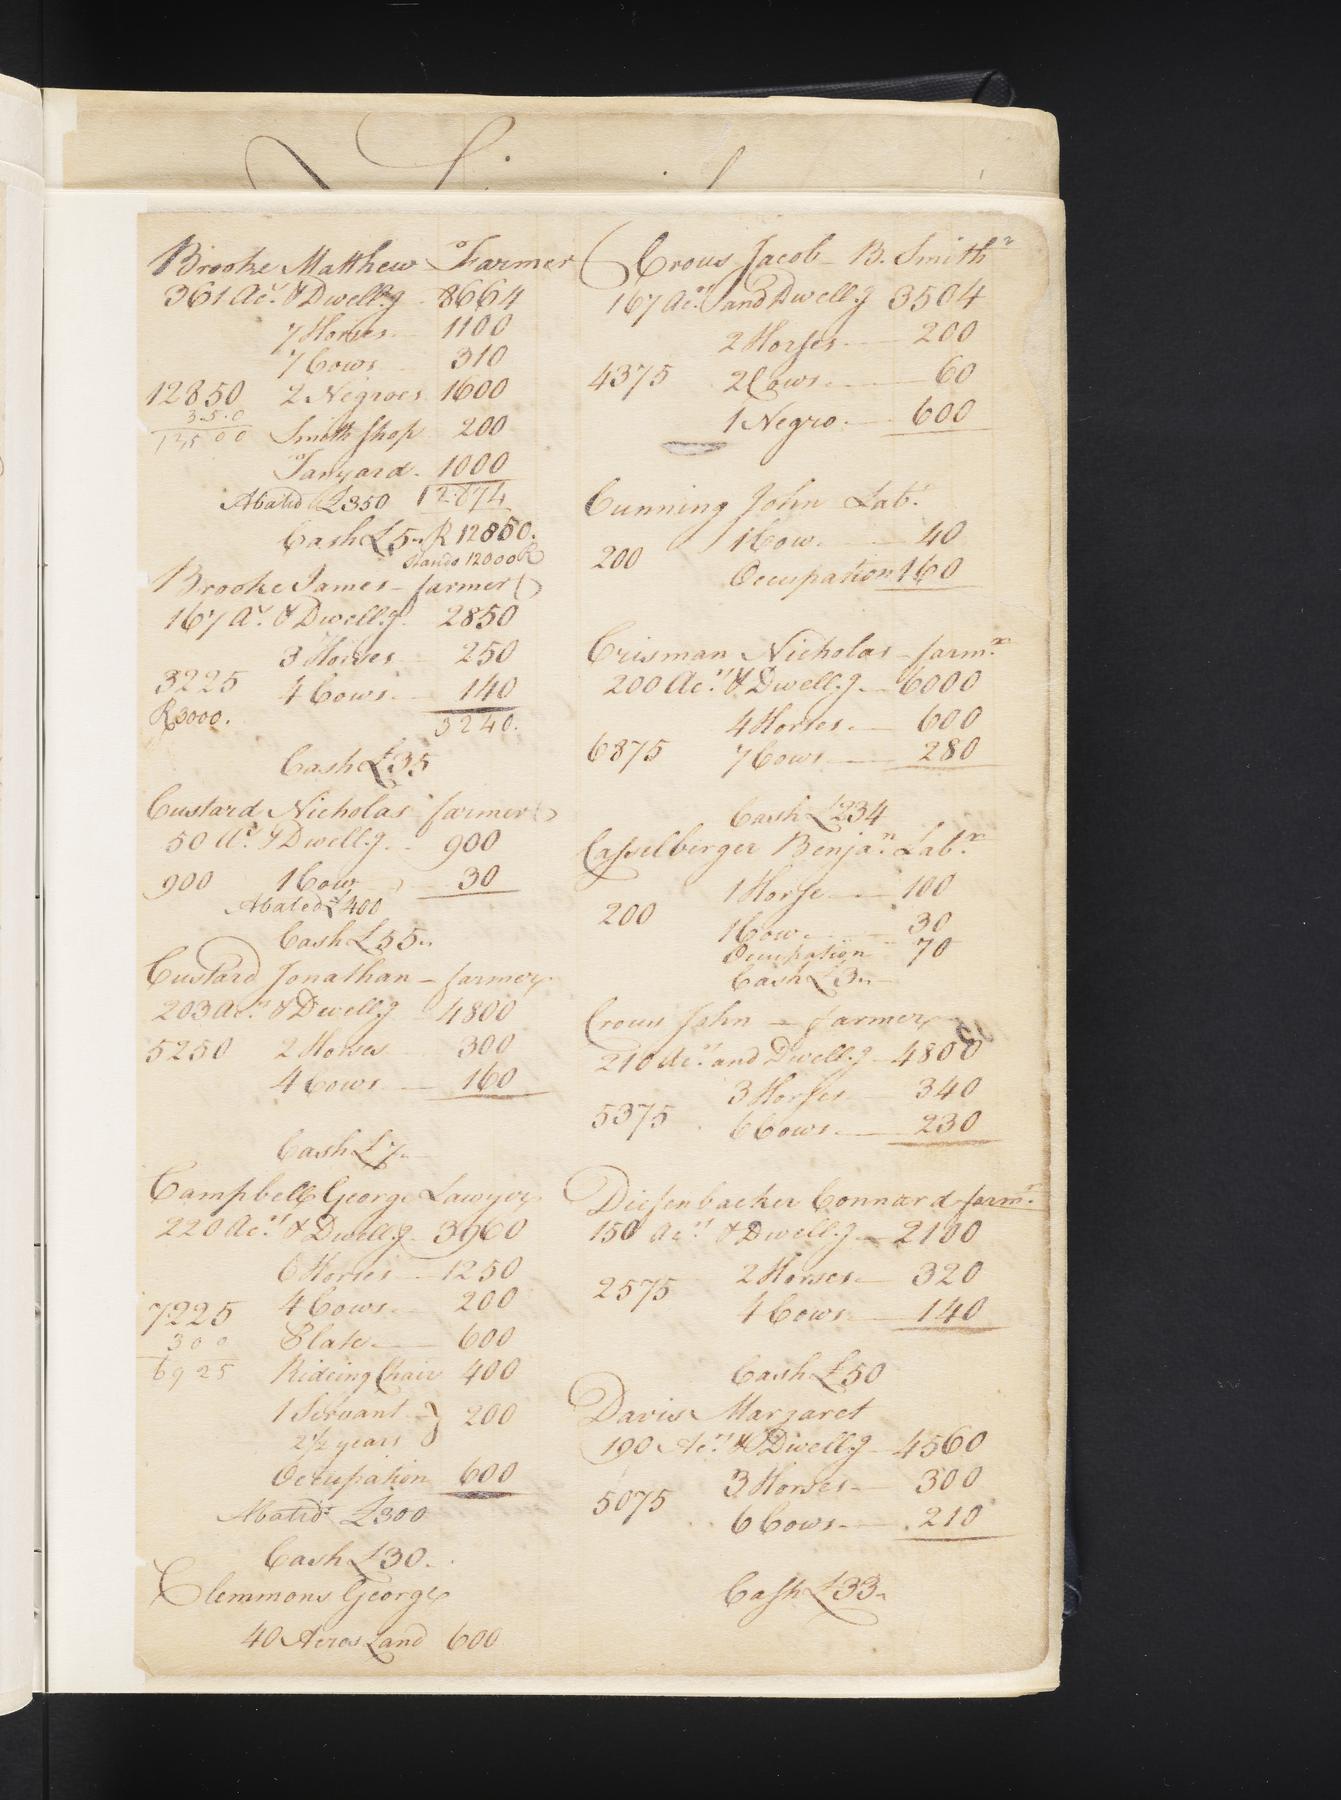 Brooke Matthew Farmer
361 Acs. & Dwell.g 8664
7 Horses 1100
7 Cows 310
12850 2 Negroes 1600
3.5.0
12500 Smith Shop 200
Tanyard 1000
Abated £350 12874
Cash £5 R 12850.
Stands 12000 R
Brooke James - farmer
167 As. & Dwell.g 2850
3 Horses 250
3225 4 Cows 140
R 3000. 3240.
Cash £35
Custard Nicholas farmer
50 As. & Dwell.g 900
900 1 Cow 30
Abated £400
Cash £55
Custard Jonathan - farmer
203 Acrs. & Dwell.g 4800
5250 2 Horses 300
4 Cows 160
Cash £7
Campbell George Lawyer
220 Acrs. & Dwell.g 3960
6 Horses 1250
7225 4 Cows 200
300 Plate 600
6925 Rideing Chair 400
1 Servant } 200
2½ years
Occupation 600
Abated £300
Cash £30
Clemmons George
40 Acres Land 600
Crous Jacob B. Smith
167 Acrs. and Dwell.g 3504
2 Horses 200
4375 2 Cows 60
1 Negro 600
Cunning John Labr.
1 Cow 40
200 Occupation 160
Crisman Nicholas - farmr.
200 Acrs. & Dwell.g 6000
4 Horses 600
6875 7 Cows 280
Cash £234
Casselberger Benjan. Labr.
1 Horse 100
200 1 Cow 30
Occupation 70
Cash £3
Crous John - farmer
210 Acrs. and Dwell.g 4800
3 Horses 340
5375 6 Cows 230
Diefenbacker Connard farmr.
150 Acrs. & Dwell.g 2100
2575 2 Horses 320
4 Cows 140
Cash £50
Davis Margaret
190 Acrs. & Dwell.g 4560
3 Horses 300
5075 6 Cows 210
Cash £33